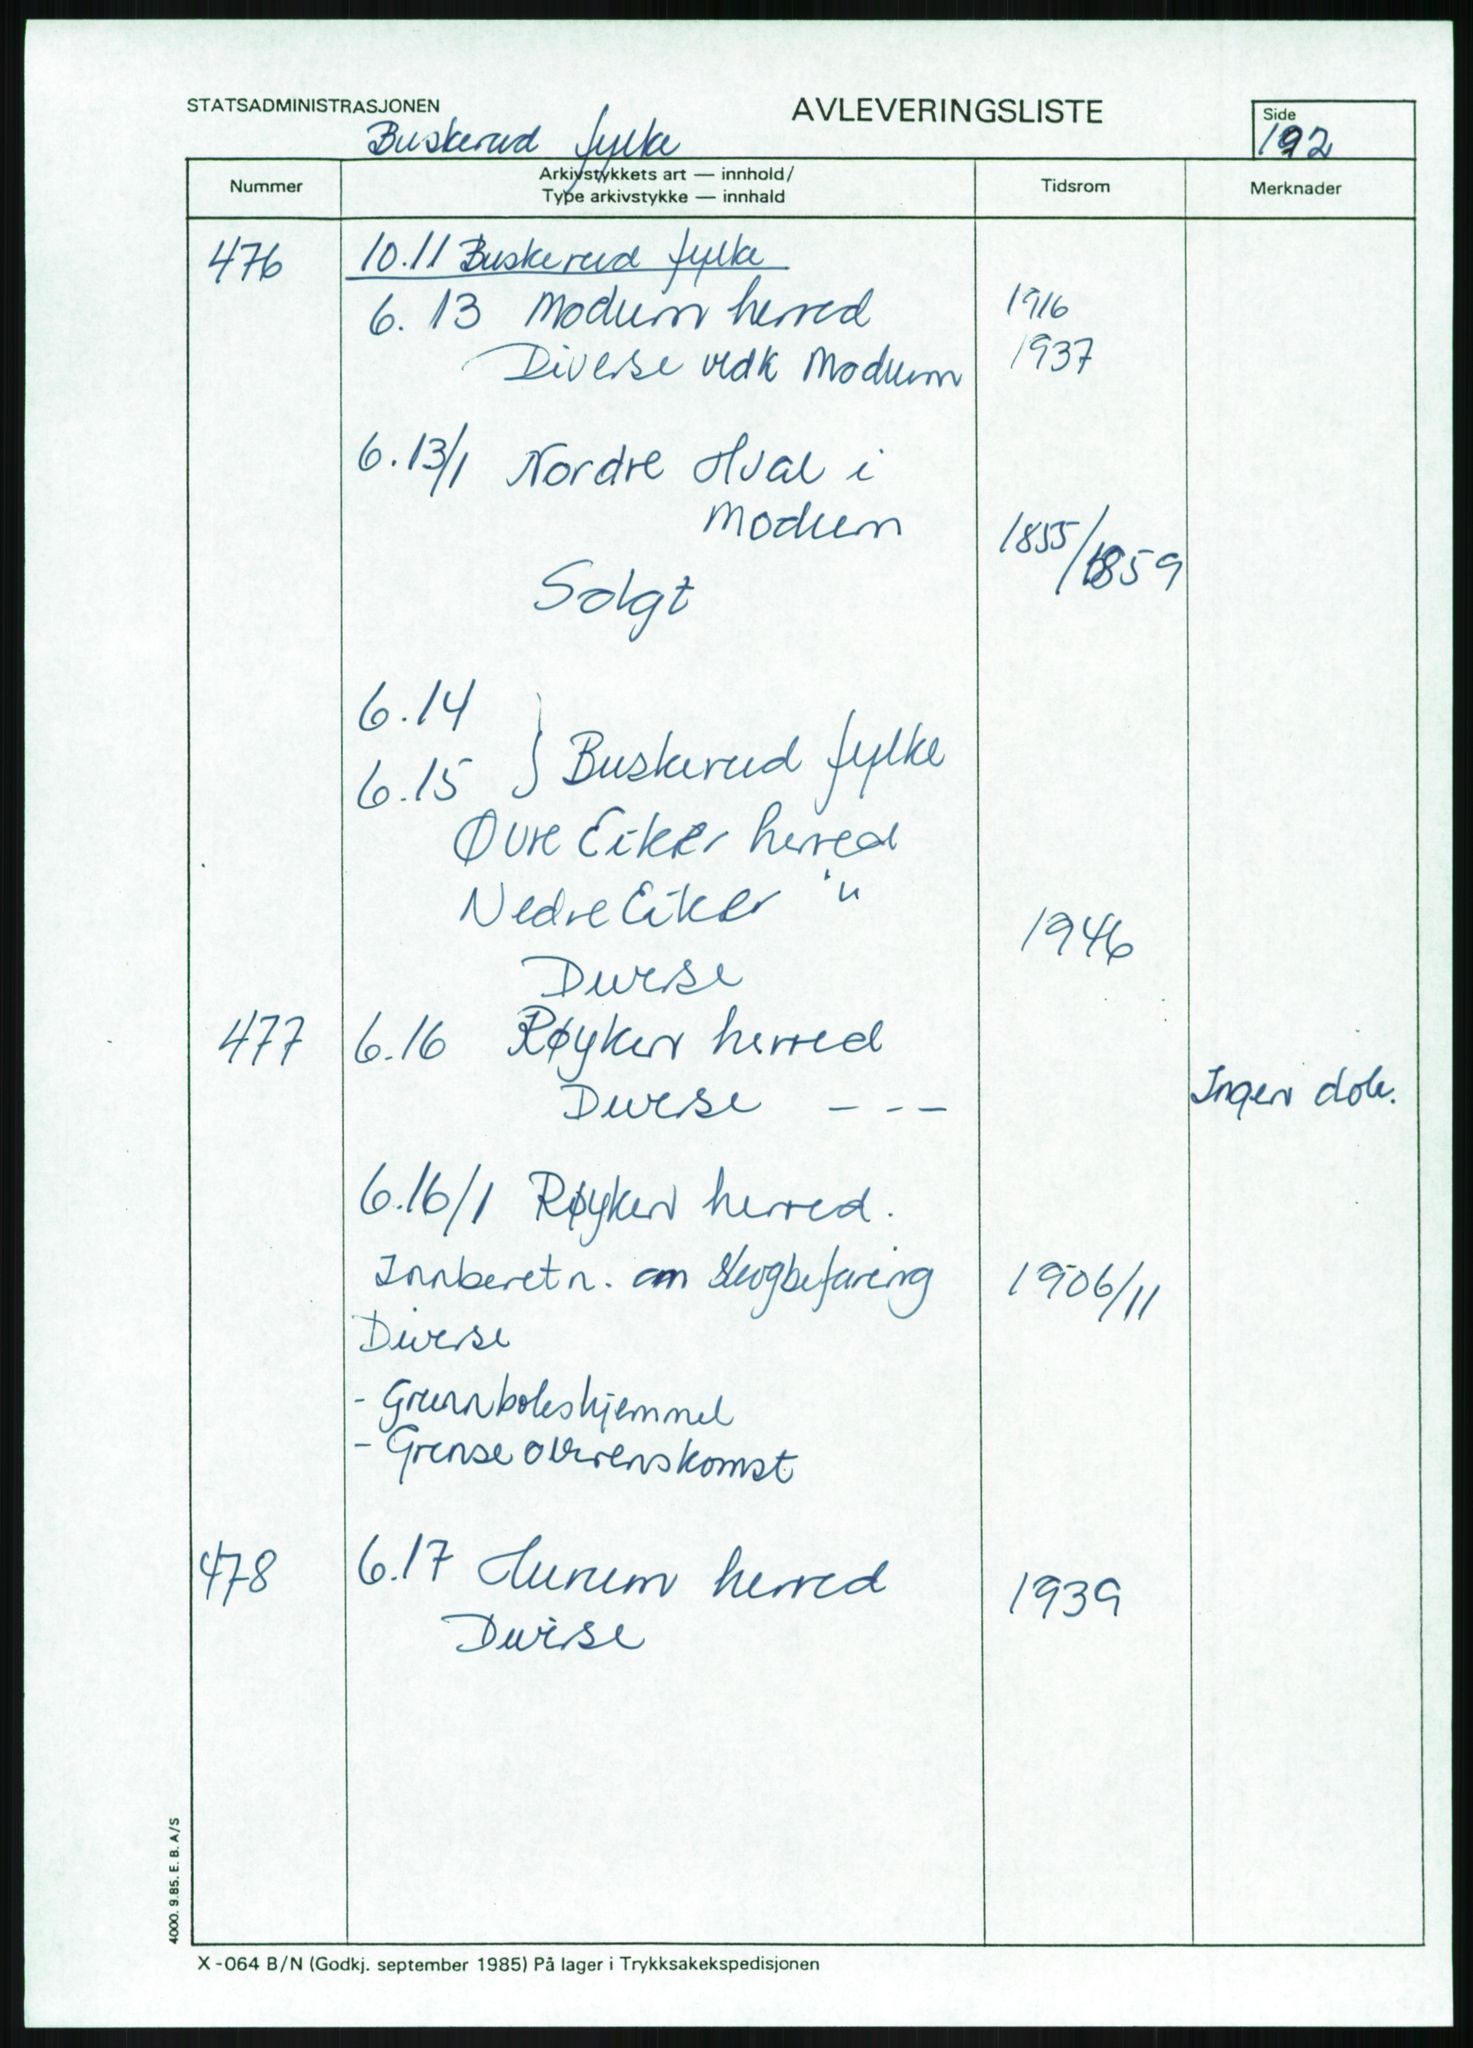 STATSADMINISTRASJONEN
AVLEVERINGSLISTE
Side
192
Buskerud fylke
Nummer
Arkivstykkets art — innhold/
Type arkivstykke — innhald
Tidsrom
Merknader
476 10.11 Buskerud fylke
6.13 Modum herred 1916
Diverse vedk Modum 1937
6.13/1 Nordre Hval i
Modum 1855/1859
Solgt
6.14
6.15 } Buskerud fylke
Øvre Eiker herred
Nedre Eiker "
Diverse 1946
477 6.16 Røyken herred
Diverse - - - Ingen dok.
6.16/1 Røyken herred.
Innberetn. om skogbefaring 1906/11
Diverse
- Grunnbokshjemmel
- Grenseoverenskomst
478 6.17 Hurum herred 1939
Diverse
4000. 9.85. E. B. A/S
X-064 B/N (Godkj. september 1985) På lager i Trykksakekspedisjonen